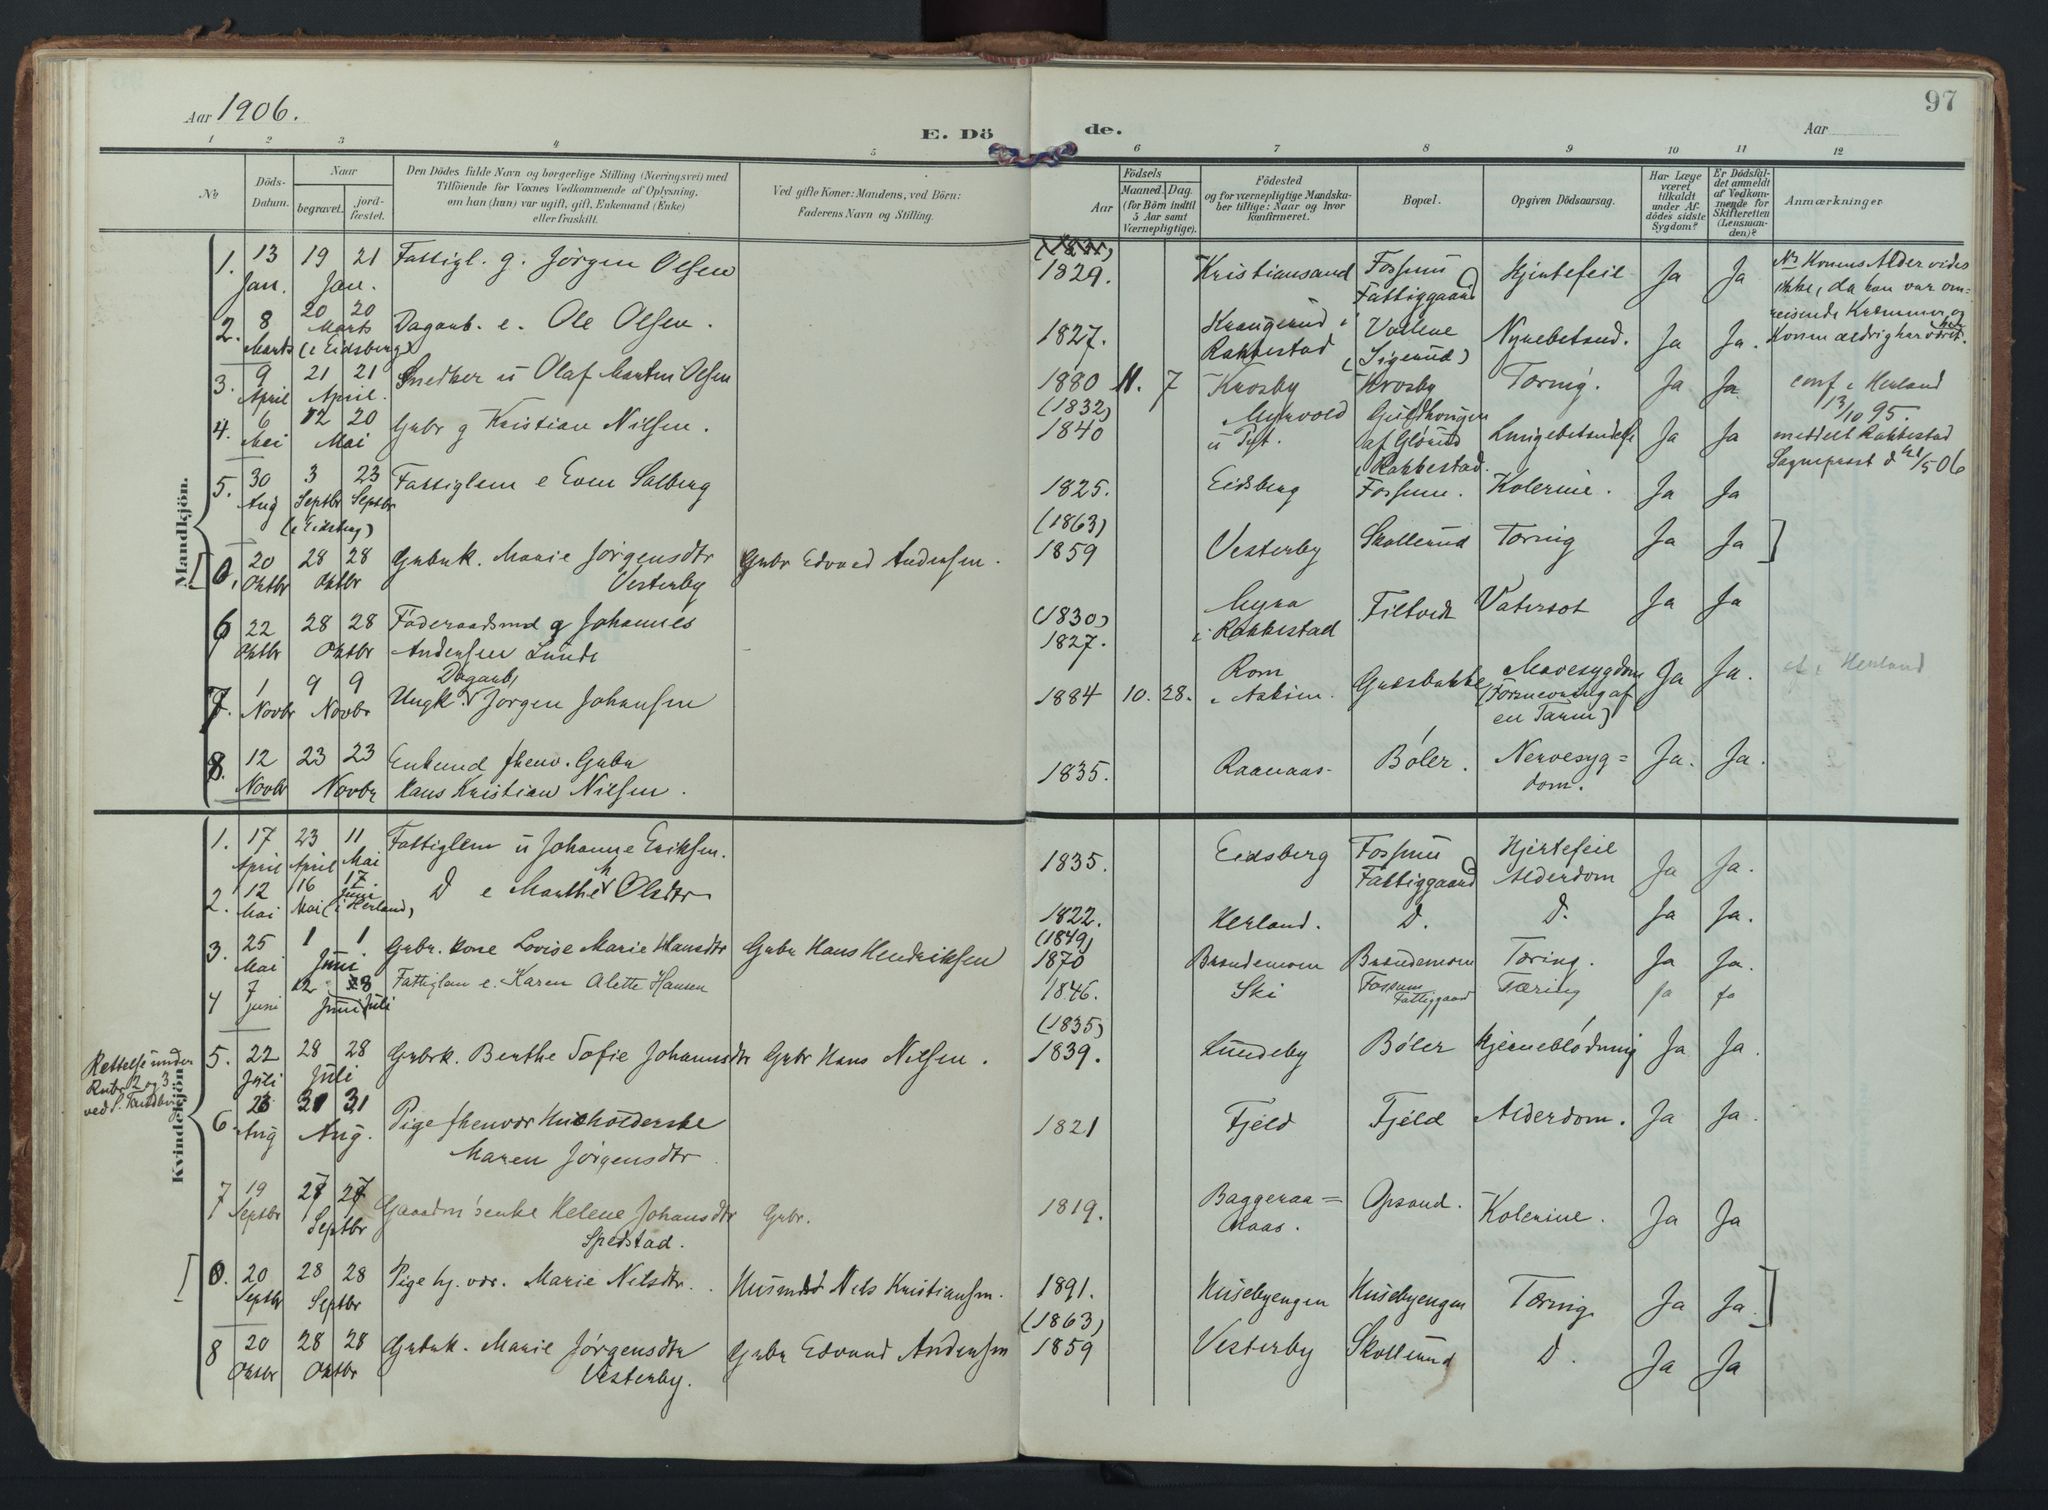 Aar 1906.
E. Döde.
97
Aar
1 2 3 4 5 6 7 8 9 10 11 12
No
Döds-Datum.
Naar
begravet.
jord-fæstet.
Den Dödes fulde Navn og borgerlige Stilling (Næringsvei) med
Tilföiende for Voxnes Vedkommende af Oplysning,
om han (hun) var ugift, gift, Enkemand (Enke)
eller fraskilt.
Ved gifte Koner: Mandens, ved Börn:
Faderens Navn og Stilling.
Födsels
Aar
Maaned.
Dag.
(for Börn indtil
5 Aar samt
Værnepligtige).
Födested
og for værnepligtige Mandska-
ber tillige: Naar og hvor
konfirmeret.
Bopæl.
Opgiven Dödsaarsag.
Har Læge
været
tilkaldt
under Af-
dödes sidste
Sygdom?
Er Dödsfal-
det anmeldt
af Vedkom-
mende for
Skifteretten
(Lensman-
den)?
Anmærkninger
Mandkjön.
1. 13 Jan. 19 21 Jan. Fattigl. g. Jørgen Olsen 1829. Kristiansand Fossum Fattiggaard Hjertefeil Ja Ja
No 1 Konens Alder vides
ikke, da han var om-
reisende Kræmmer, og
Konen aldrig har været her.
2. 8 Marts 20 20 Marts (i Eidsberg) Dagarb. e. Ole Olsen. 1827. Krangerud i Rakkestad (Sigerud) Nyrebetænd. Ja Ja.
3. 9 April 21 21 April. Snedker u Olaf Marten Olsen 1880 11. 7 Krosby Krosby Tæring. Ja Ja conf i Herland
13/10 95.
4. 6 Mai 12 20 Mai Gubr g Kristian Nilsen. (1832) 1840 Myrvold af Glørud i Rakkestad. Lungebetændelse Ja Ja meddelt Rakkestad
Sogneprest d 21/5 06
5. 30 Aug 3 Septbr 23 Septbr (i Eidsberg) Fattiglem e Even Solberg 1825. Eidsberg Fossum. Kolerine. Ja Ja
[0. 20 Oktbr 28 28 Oktbr Gubrk. Marie Jørgensdtr Vesterby Gubr Edvard Andersen. (1863) 1859 Vesterby Skollerud Tæring Ja Ja ]
6 22 Oktbr 28 28 Oktbr Føderaadsmd g Johannes Andersen Lunde (1830) 1827. Myra i Rakkestad Filtvedt Vatersot Ja Ja
7. 1 Novbr 9 9 Novbr Ungk. Dagarb, Jørgen Johansen 1884 10. 28. Rom i Askim. Græsbakke Mavesygdom (Forsnevring af en Tarm) Ja Ja. cf i Herland
8. 12 Novbr 23 23 Novbr Enkemd fhenv. Gubr Hans Kristian Nilsen. 1835. Raanaas Bøler. Nervesyg=dom. Ja. Ja.
Kvindekjön.
1. 17 April 23 April 11 Mai Fattiglem u Johanne Eriksen. 1835. Eidsberg Fossum Fattiggaard Hjertefeil Alderdom Ja Ja.
2. 12 Mai 16 Mai 17. Juni (i Herland) D e Marthe Olsdtr 1822. Herland. D. D. Ja Ja.
3. 25 Mai 1 1 Juni Gubr. kone Lovise Marie Hansdtr Gubr Hans Hendriksen (1849) 1870 Brændemoen Brændemoen Tæring. Ja Ja.
4 7 Juni 12 Juni 8 Juli Fattiglem e. Karen Alette Hansen 1846. Ski Fossum Fattiggaard Tæring Ja Ja
5. 22 Juli 28 28 Juli Gubrk. Berthe Sofie Johannsdtr Gubr Hans Nilsen. (1835) 1839. Lundeby Bøler Hjerneblødning Ja Ja.
Rettelse under
Rubr 2 og 3
ved S. Tandberg
6. 23 Aug 31 31 Aug. Pige fhenvær Husholderske Maren Jørgensdtr 1821 Fjeld Fjeld Alderdom. Ja Ja.
7 19 Septbr 27 27 Septbr Gaardm's enke Helene Johansdtr Spedstad. Gubr. 1819. Baggeraa=naas. Opsand. Kolerine. Ja Ja
[0. 20 Septbr 28 28 Septbr Pige hj. vær. Marie Nilsdtr. Husmd Nils Kristiansen. 1891. Husebyengen Husebyengen Tæring Ja Ja. ]
8 20 Oktbr 28 28 Oktbr Gubrk. Marie Jørgensdtr Vesterby. Gubr Edvard Andersen (1863) 1859 Vesterby Skollerud D. Ja Ja